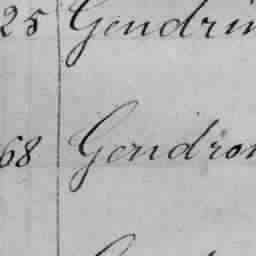 25 Gendrin
68 Gendron